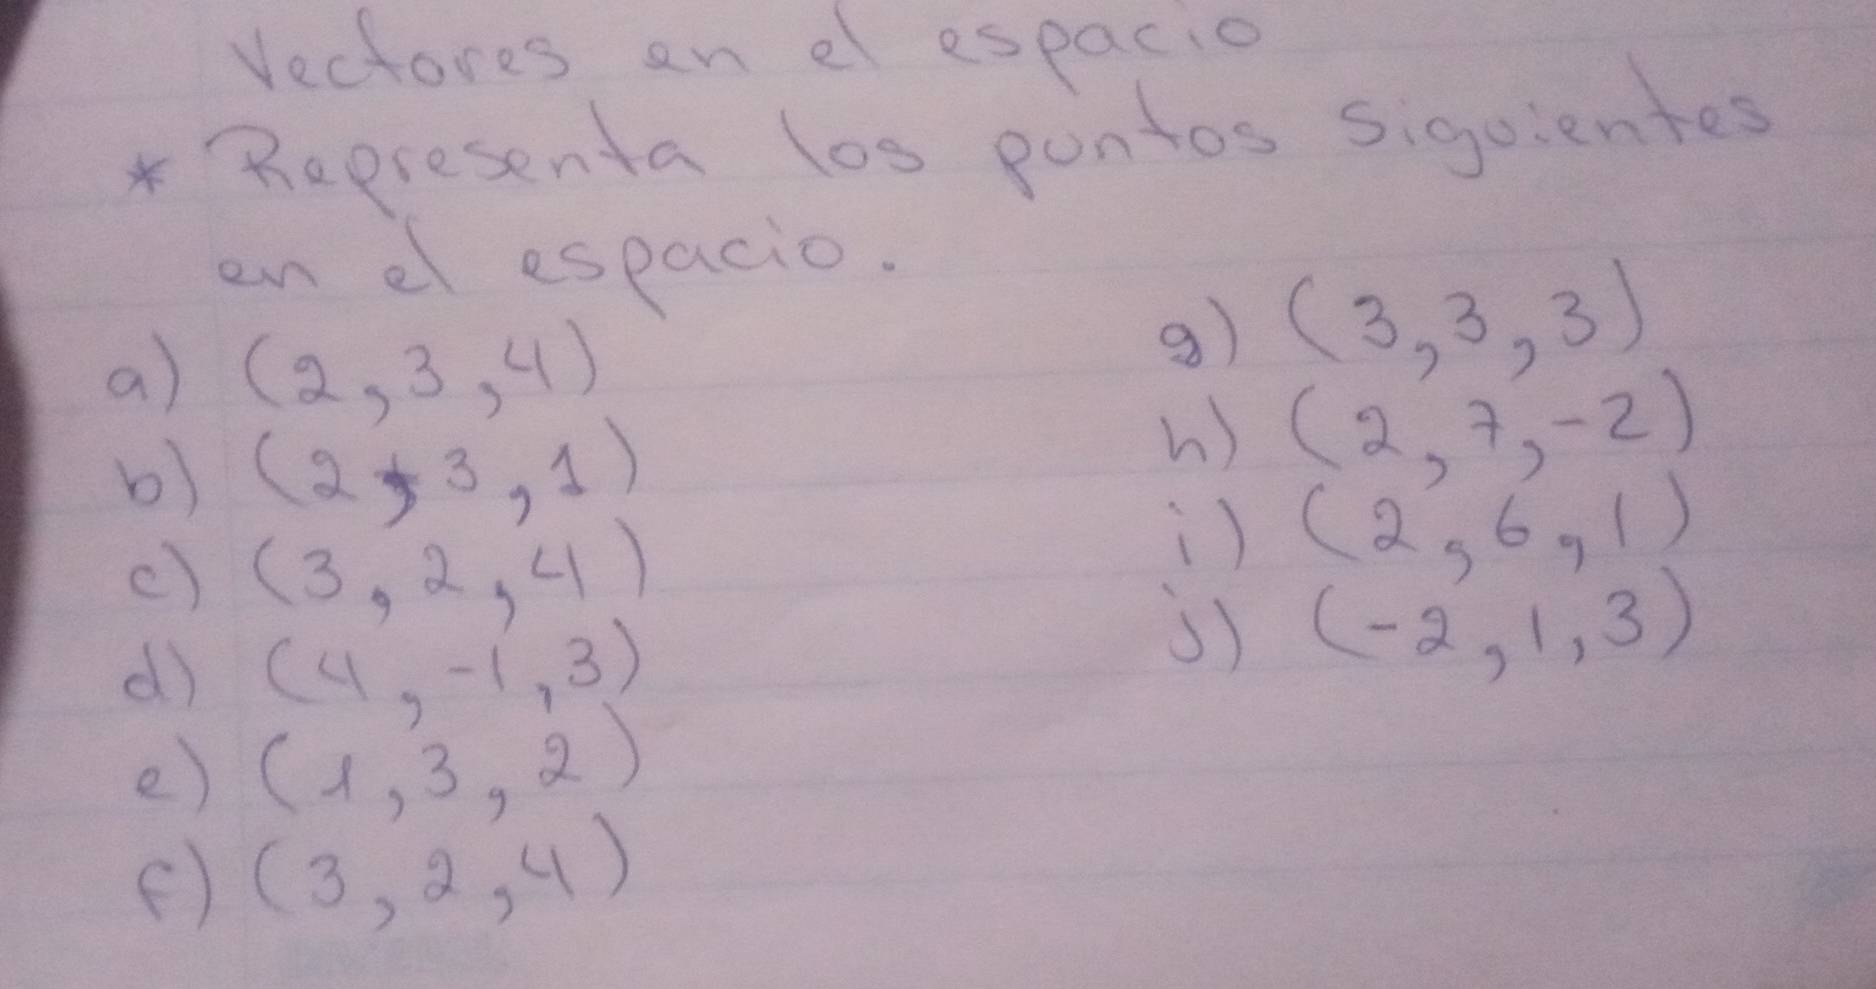 Vectores en el espacio
* Representa los puntos siguientes
en el espacio.
a) (2,3,4)
b) (2,3,1)
c) (3,2,4)
d) (4,-1,3)
e) (1,3,2)
f) (3,2,4)
g) (3,3,3)
h) (2,7,-2)
i) (2,6,1)
j) (-2,1,3)